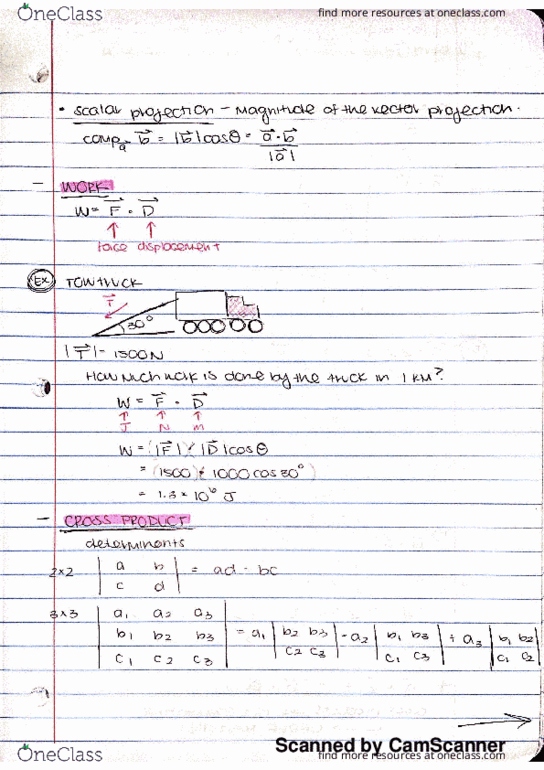 OneClass find more resources at oneclass.com
• scalar projection - Magnitude of the vector projection.
comp_a b⃗ = |b⃗|cosθ = a⃗·b⃗ / |a⃗|
- WORK
W = F⃗ · D⃗
↑ ↑
force displacement
Ex TOW truck
T⃗
30°
|T⃗| = 1500N
How much work is done by the truck in 1 KM?
W = F⃗ · D⃗
↑ ↑ ↑
J N m
W = |F⃗| |D⃗| cosθ
= (1500)(1000 cos30°)
= 1.3 × 10⁶ J
- CROSS PRODUCT
determinants
2×2 | a b | = ad - bc
| c d |
3×3 | a₁ a₂ a₃ |
| b₁ b₂ b₃ | = a₁ | b₂ b₃ | - a₂ | b₁ b₃ | + a₃ | b₁ b₂ |
| c₁ c₂ c₃ | | c₂ c₃ | | c₁ c₃ | | c₁ c₂ |
→
Scanned by CamScanner
OneClass find more resources at oneclass.com